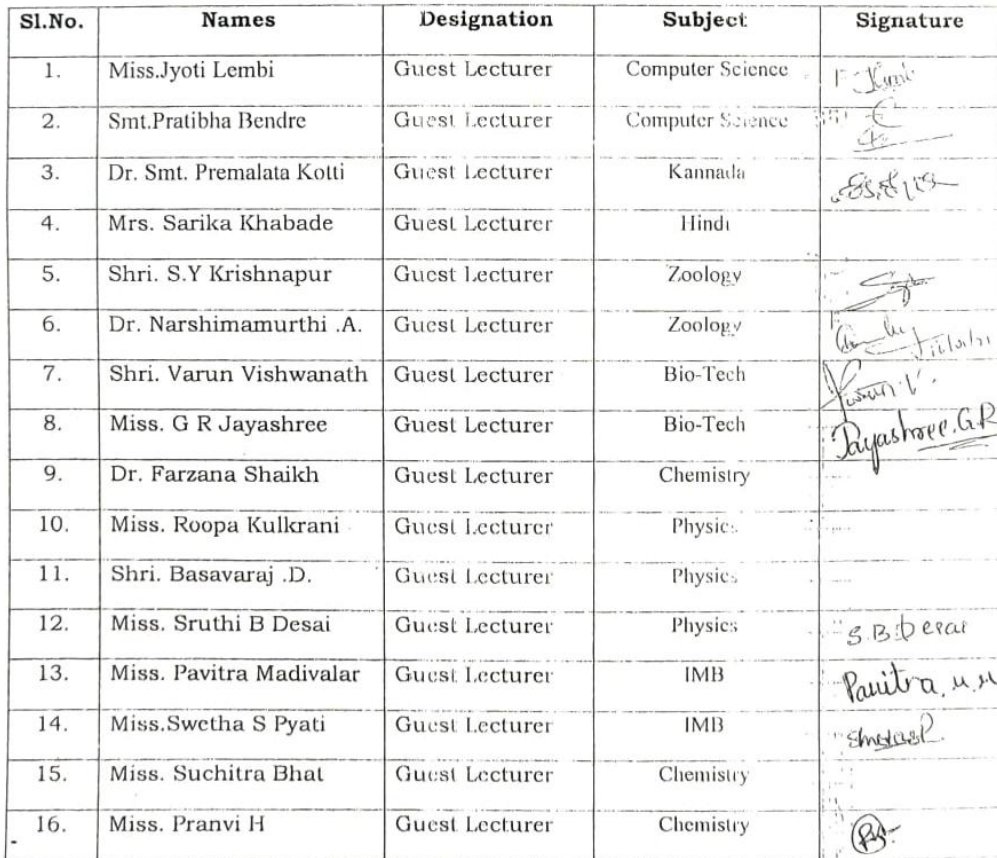 Sl.No. Names Designation Subject Signature
1. Miss.Jyoti Lembi Guest Lecturer Computer Science
2. Smt.Pratibha Bendre Guest Lecturer Computer Science
3. Dr. Smt. Premalata Kotti Guest Lecturer Kannada
4. Mrs. Sarika Khabade Guest Lecturer Hindi
5. Shri. S.Y Krishnapur Guest Lecturer Zoology
6. Dr. Narshimamurthi .A. Guest Lecturer Zoology
7. Shri. Varun Vishwanath Guest Lecturer Bio-Tech
8. Miss. G R Jayashree Guest Lecturer Bio-Tech Jayashree.G.R
9. Dr. Farzana Shaikh Guest Lecturer Chemistry
10. Miss. Roopa Kulkrani Guest Lecturer Physics
11. Shri. Basavaraj .D. Guest Lecturer Physics
12. Miss. Sruthi B Desai Guest Lecturer Physics S.B.Desai
13. Miss. Pavitra Madivalar Guest Lecturer IMB Pavitra. M.M
14. Miss.Swetha S Pyati Guest Lecturer IMB
15. Miss. Suchitra Bhat Guest Lecturer Chemistry
16. Miss. Pranvi H Guest Lecturer Chemistry